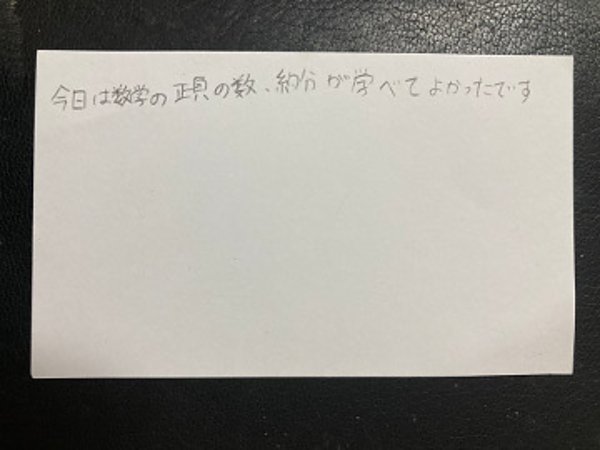 今日は数学の正負の数、約分が学べてよかったです